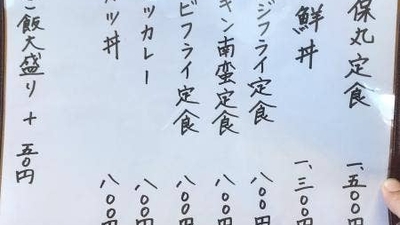 保丸定食 一、五〇〇円
鮮丼 一、三〇〇円
ジフライ定食 八〇〇円
キン南蛮定食 八〇〇円
ビフライ定食 八〇〇円
ツカレー 八〇〇円
ツ丼 八〇〇円
ご飯大盛り + 五〇円